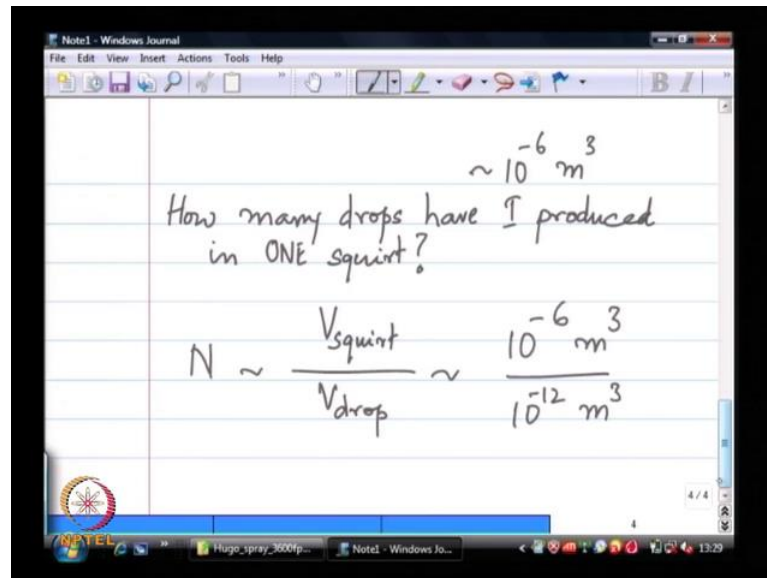 Note1 - Windows Journal
File Edit View Insert Actions Tools Help
B I
~ 10^-6 m^3
How many drops have I produced
in ONE squirt?
N ~ V_squirt / V_drop ~ 10^-6 m^3 / 10^-12 m^3
4 / 4
4
NPTEL
Hugo_spray_3600fp...
Note1 - Windows Jo...
13:29